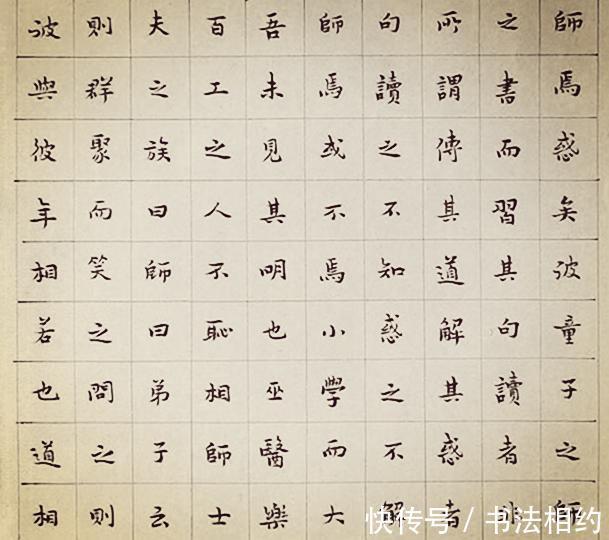 師焉惑矣彼童子之師
之書而習其句讀者非
所謂傳其道解其惑者
句讀之不知惑之不解
師焉或不焉小學而大
吾未見其明也巫醫樂
百工之人不恥相師士
夫之族曰師曰弟子云
則群聚而笑之問之則
彼與彼年相若也道相
快传号 / 书法相约